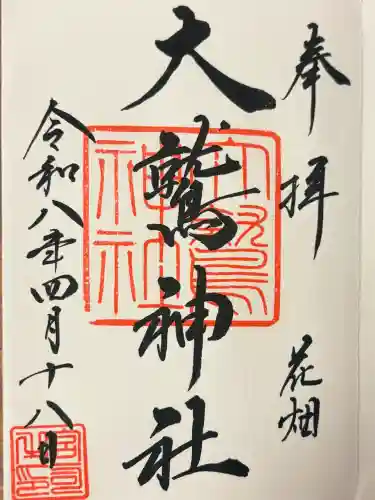 奉拝 花畑
大鷲神社
令和八年四月十八日